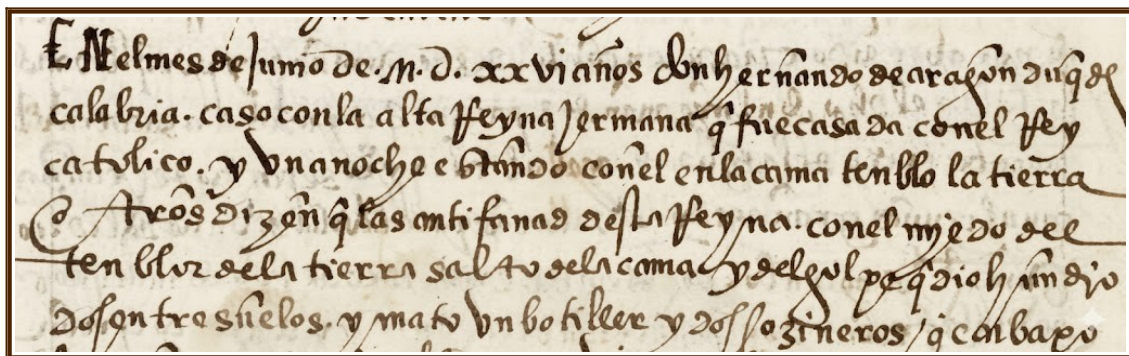 EN el mes de Junio de .M.D. xxvi años don hernando de aragon duq̃ de
calabria. caso con la alta Reyna Jermana q̃ fue casada con el Rey
catolico. y vna noche estando con el en la cama tenblo la tierra
otros dizen q̃ las antifanad desta Reyna. con el myedo del
tenblor de la tierra salto de la cama y del golpe q̃ dio hundio
dos entresuelos. y mato vn botiller y dos cozineros, q̃ en baxo